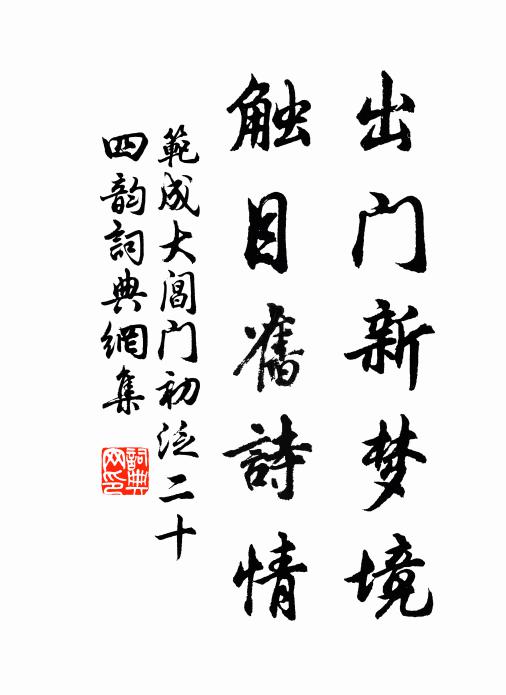 出门新梦境
触目舊詩情
範成大閶门初泛二十
四韵詞典網集
詞典
网印